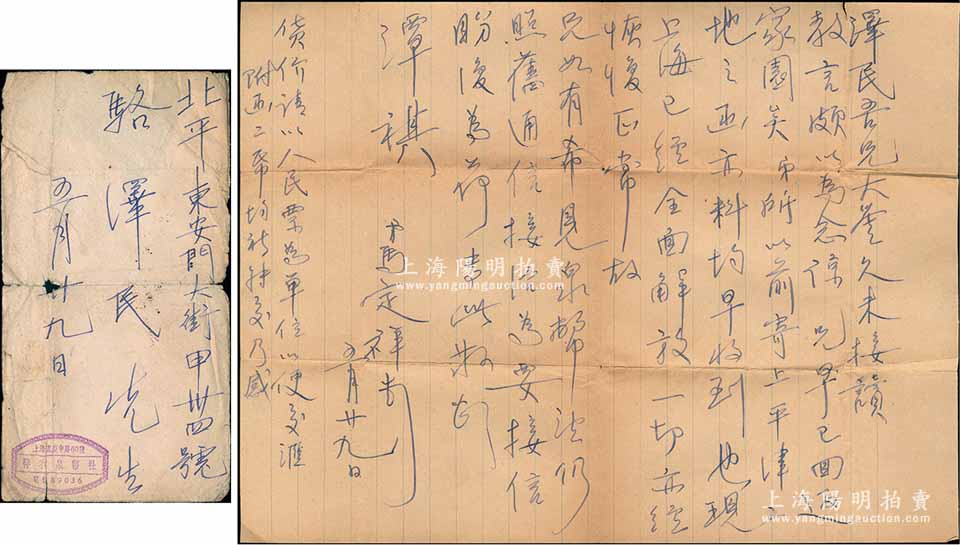 北平東安門大街甲卅四號
駱澤民先生
五月廿九日
上海
60號
泉幣社
電話89036
澤民吾兄大鑒久未接讀
教言頗以為念諒兄早已回
家園矣弟所以前寄上平津
地之函亦料均早收到也現
上海已經全面解放一切亦經
恢復正常故
兄如有希見泉幣法仍
照舊通信接洽為要接信
盼復為荷專此敬頌
潭祺
弟馬定祥
五月廿九日
債价請以人民票為單位以便交滙
附函二希均祈轉交乃感
上海陽明拍賣
www.yangmingauction.com
上海陽明拍賣
www.yangmingauction.com